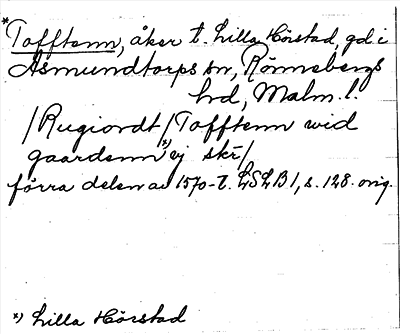 *Tofftenn, åker t. Lilla Hörstad, gd. i
Asmundtorps sn, Rönnebergs
hd, Malm. l.
/Rugiordt/ Tofftenn wid
gaardenn *) ej skr/
förra delen av 1570-t. LSLB 1, s. 128. orig.
*) Lilla Hörstad